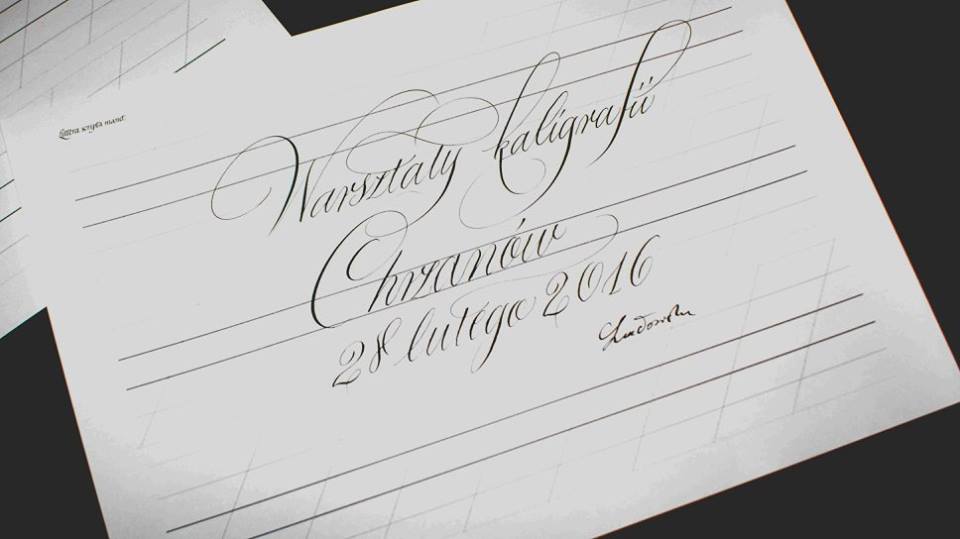 Littera scripta manet
Warsztaty kaligrafii
Chrzanów
28 lutego 2016